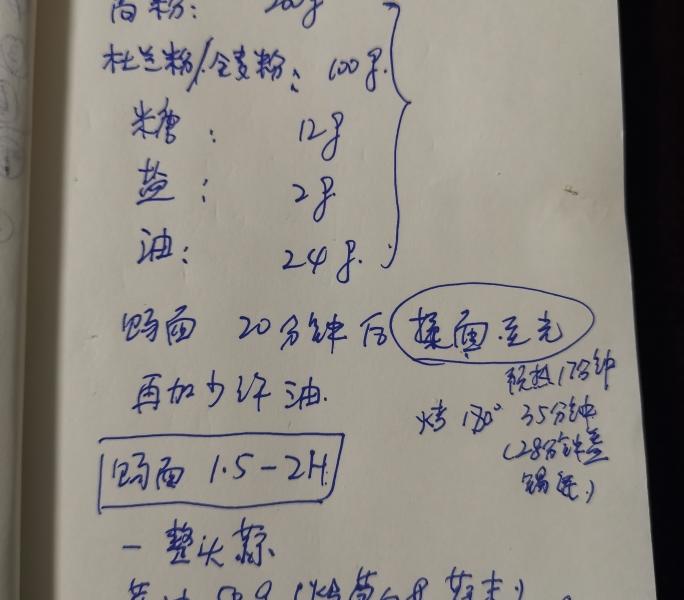 高粉: 200g
杜兰粉/全麦粉: 100g.
糖: 12g
盐: 2g
油: 24g.
醒面 20分钟后 揉面至光
再加少许油.
预热17分钟
烤 180° 35分钟
(28分钟盖
锡纸)
醒面 1.5-2H
一整头蒜